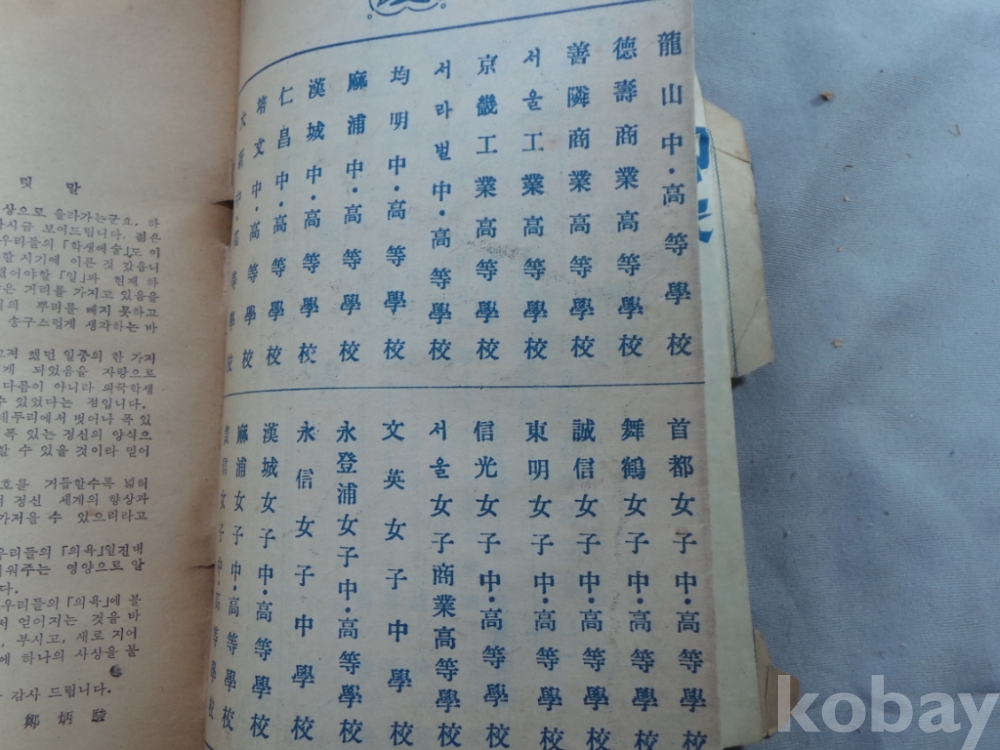 龍山中·高等學校
德壽商業高等學校
善隣商業高等學校
서울工業高等學校
京畿工業高等學校
서라벌中·高等學校
均明中·高等學校
麻浦中·高等學校
漢城中·高等學校
仁昌中·高等學校
培文中·高等學校
首都女子中·高等學校
舞鶴女子中·高等學校
誠信女子中·高等學校
東明女子中·高等學校
信光女子中·高等學校
서울女子商業高等學校
文英女子中學校
永登浦女子中·高等學校
永信女子中學校
漢城女子中·高等學校
麻浦女子中·高等學校
女子中·高等學校
말
상으로 올라가는군요. 하
다시금 보여드립니다. 젊은
우리들의 「학생예술」도 이
할 시기에 이른 것 같읍니
했어야할 「일」과 현재 하
은 거리를 가지고 있음을
의 뿌리를 빼지 못하고
송구스럽게 생각하는 바
고저 했던 일중의 한 가저
게 되었음을 자랑으로
다름이 아니라 외국학생
수 있었다는 점입니다.
테두리에서 벗어나 폭 있
폭 있는 정신의 양식으
할 수 있을 것이라 믿어
호를 거듭할수록 넓혀
정신 세계의 향상과
가저올 수 있으리라고
우리들의 「의욕」일진대
워주는 영양으로 알
다.
우리들의 「의욕」에 불
서 얻어지는 것을 바
부시고, 새로 지어
에 하나의 사상을 불
감사 드립니다.
鄭炳駿
kobay